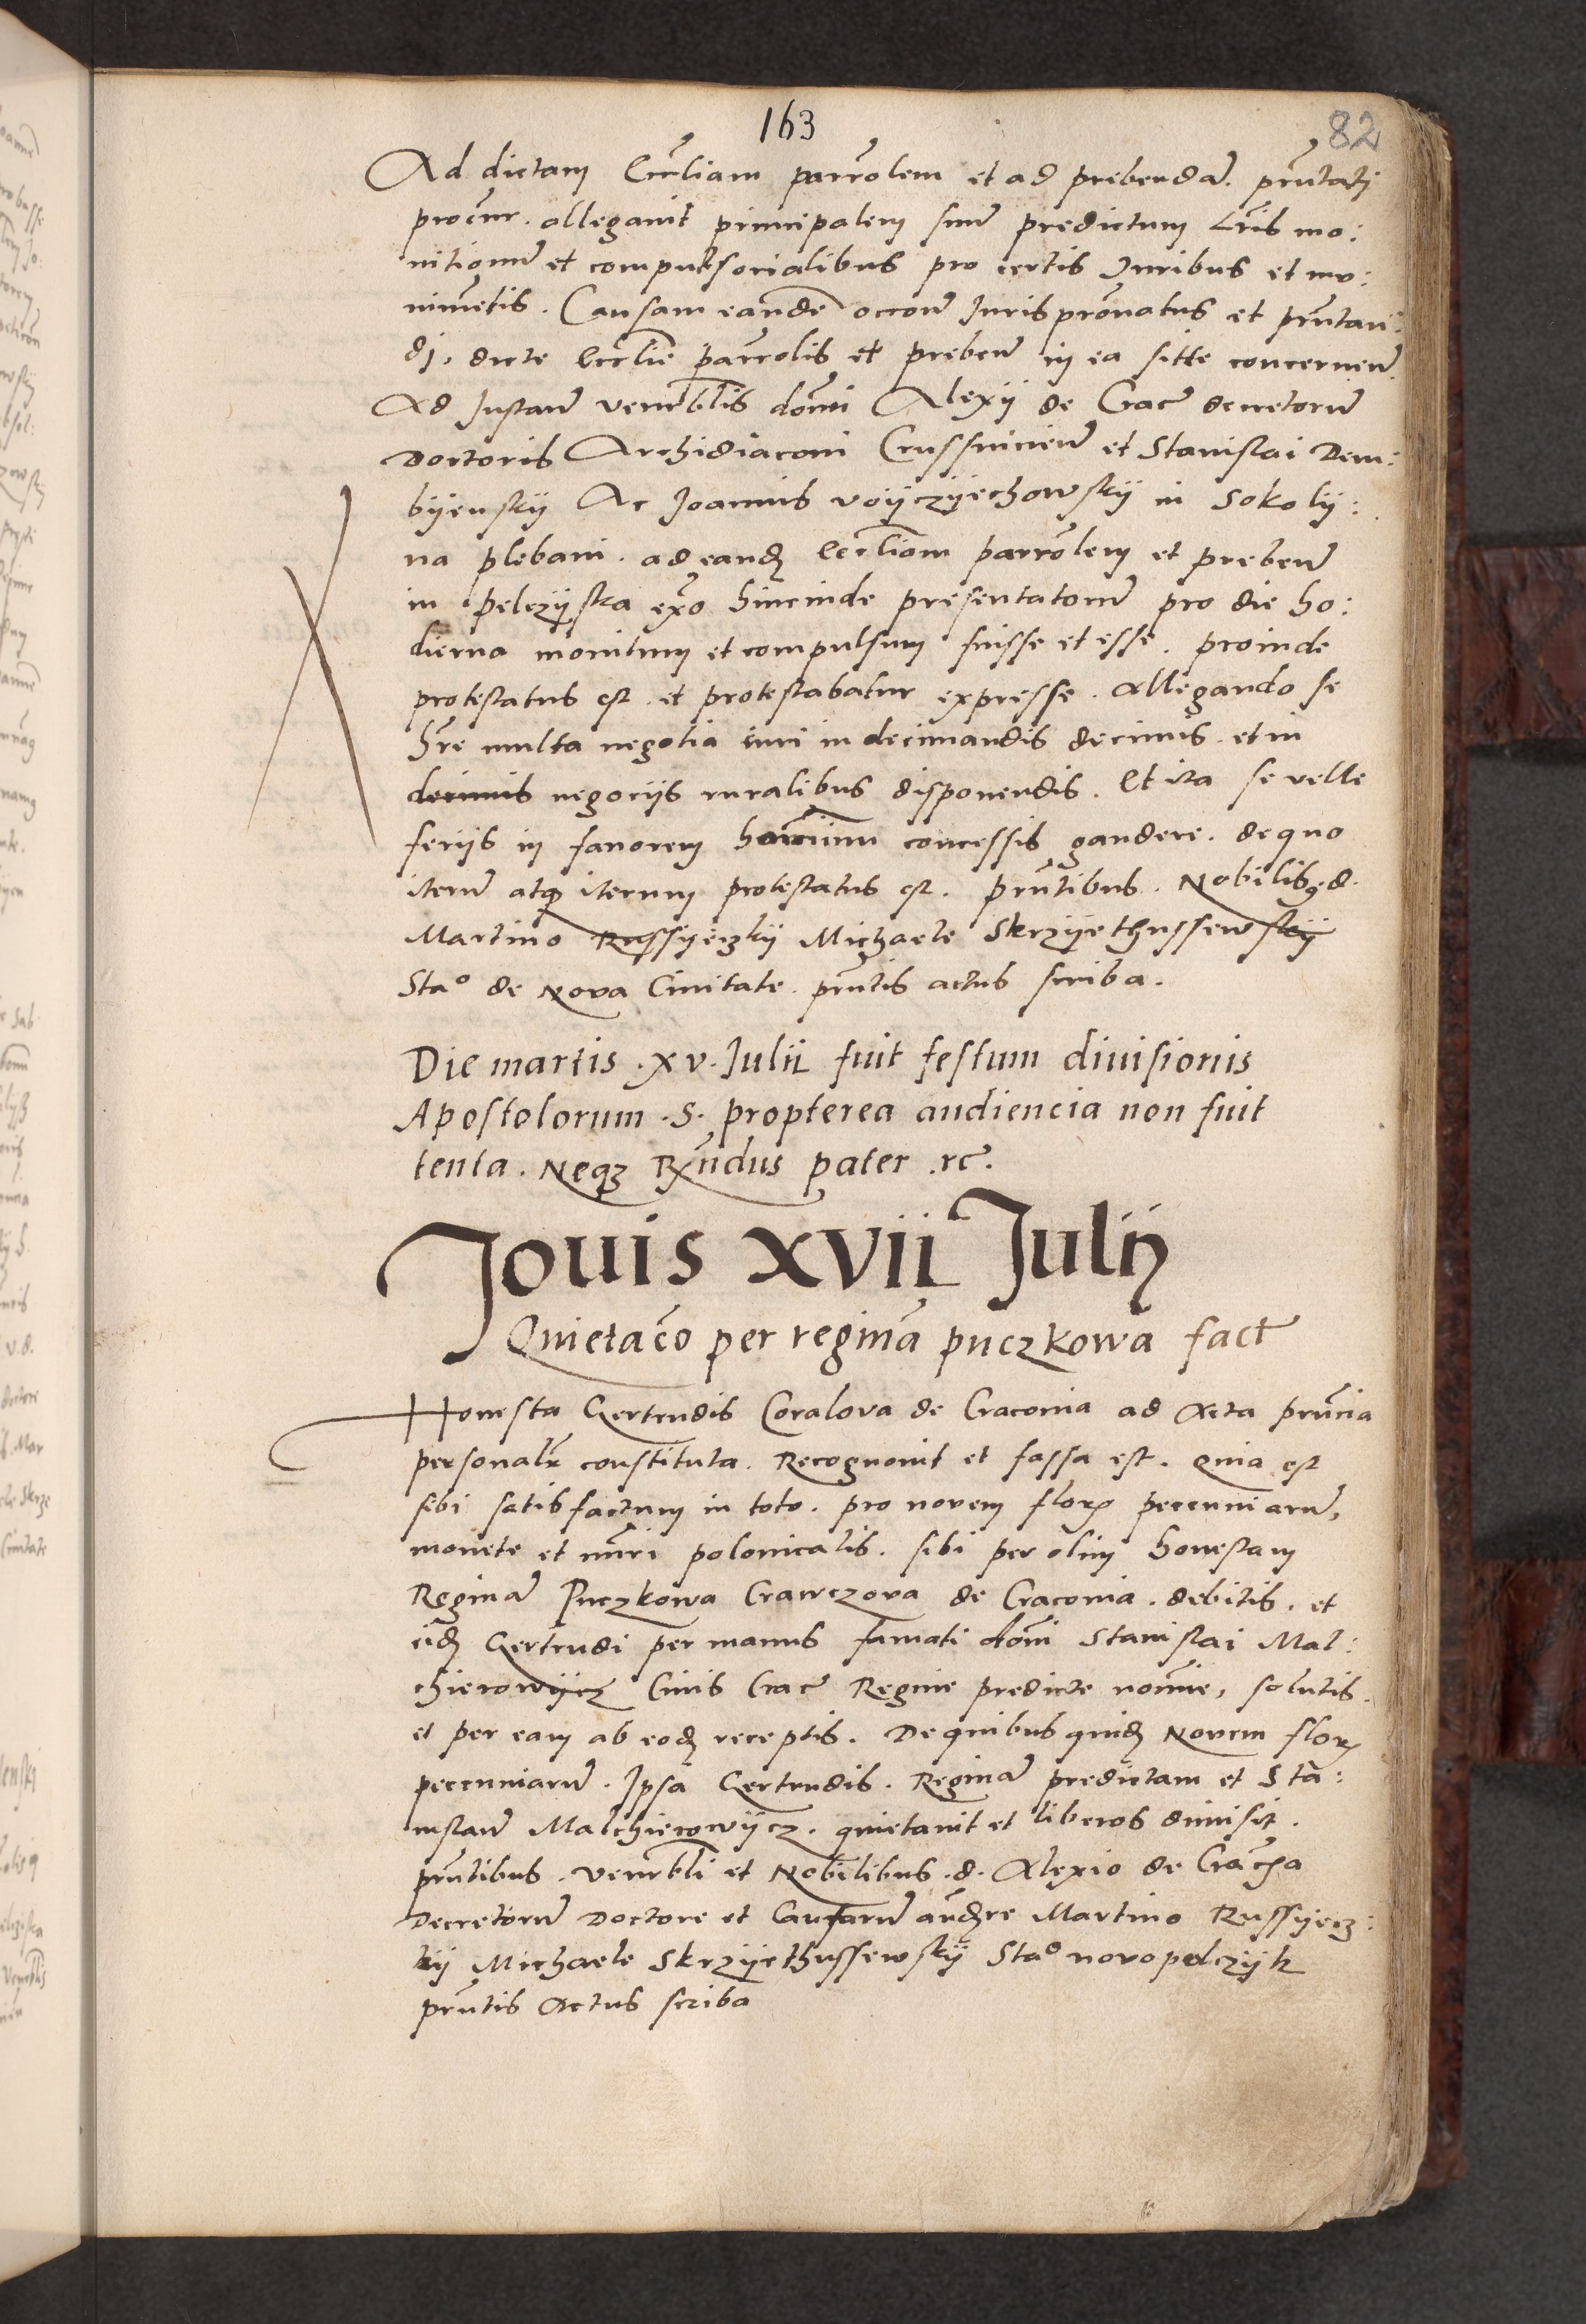 163
82
Ad dictam Eccliam parrolem et ad prebendā. prntatj
procur. allegauit principalem suū predictum Lris mo:
nitionū et compulsorialibus pro certis Iuribus et mo:
nimētis. Causam eandē occoñ Iuris pronatus et prntan:
dj. dicte Ecclie parrolis et prebeñ in ea sitte concerneñ
Ad Instañ venerblis domi Alexij de Crac decretorū
Doctoris Archidiaconi Crussuicieñ et Stanislai Dem:
byenskij Ac Joannis voyczyechowskij in Sokolij:
na plebani. ad eandē Eccliam parrolem et prebeñ
in pelczyska exo hincinde presentatorū pro die ho:
dierna monitum et compulsum fuisse et esse. proinde
protestatus est. et protestabatur expresse. Allegando se
hre multa negotia iuri in decimandis decimis. et in
decimis negocijs ruralibus disponendis. Et ita se velle
ferijs in fauorem hominū concessis gaudere. de quo
iterū atq3 iterum protestatus est. prntibus. Nobilib9 d.
Martino Russyeczky Michaele Skrzyethussewskij
Stao de Nova Ciuitate. prntis actus scriba.
Die martis .xv. Julii fuit festum diuisionis
Apostolorum .S. propterea audiencia non fuit
tenta. Neq3 Rndus pater .rc.
Jouis xvii Julij
Quietaco per reginā puczkowa fact
Honesta Gertrudis Coralova de Cracouia ad Acta prncia
personalr constituta. Recognouit et fassa est. quia est
sibi satisfactum in toto. pro novem flor pecuniarū,
monete et nuri polonicalis. sibi per olim honestam
Reginā Puczkowa Crawczova de Cracouia. debitis. et
eidē Gertrudi per manus famati domi Stanislai Mal:
chierowijcz Ciuis Crac Regine predicte nomie, solutis.
et per eam ab eodē receptis. De quibus quidē Novem flor
pecuniarū. Ipsa Gertrudis. Reginā predictam et Sta:
nislaū Malchierowijcz. quietauit et liberos dimisit.
prntibus. venerbli et Nobilibus .d. Alexio de Cracha
Decretorū Doctore et Causarū audre Martino Russyecz:
kij Michaele Skrzyethussewskij Stao novopolczijk
prntis Actus scriba